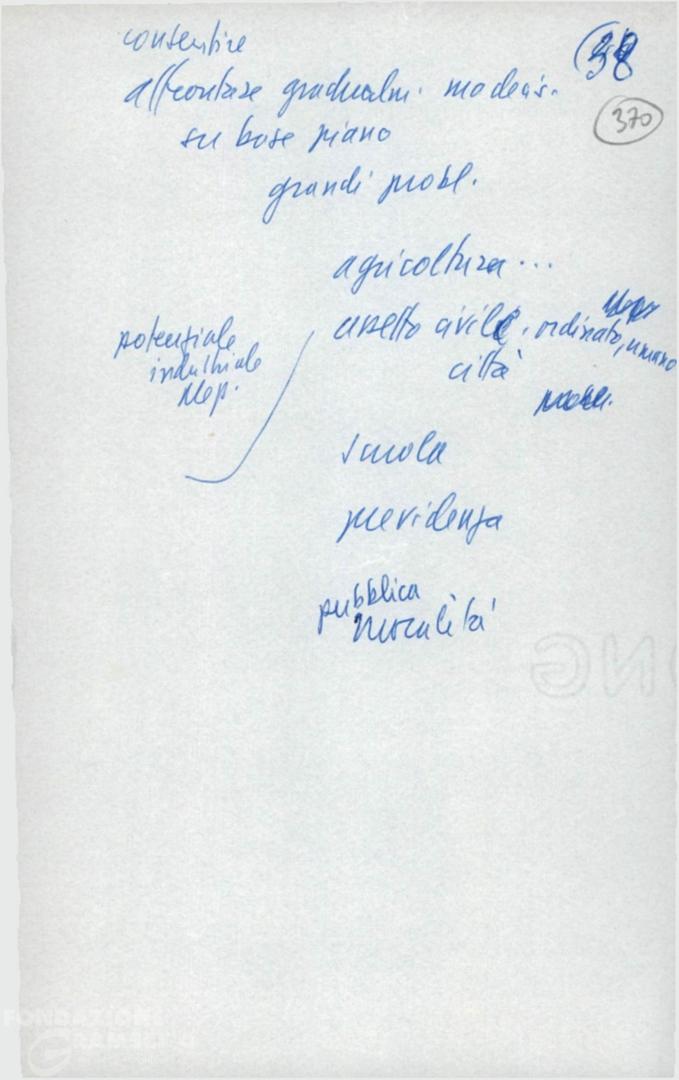 consentire
38
affrontare gradualm. modern.
370
su base piano
grandi probl.
agricoltura...
assetto civile, ordinato, umano
città
potenziale
industriale
Mep.
scuola
previdenza
pubblica
moralità
FONDAZIONE
GRAMSCI